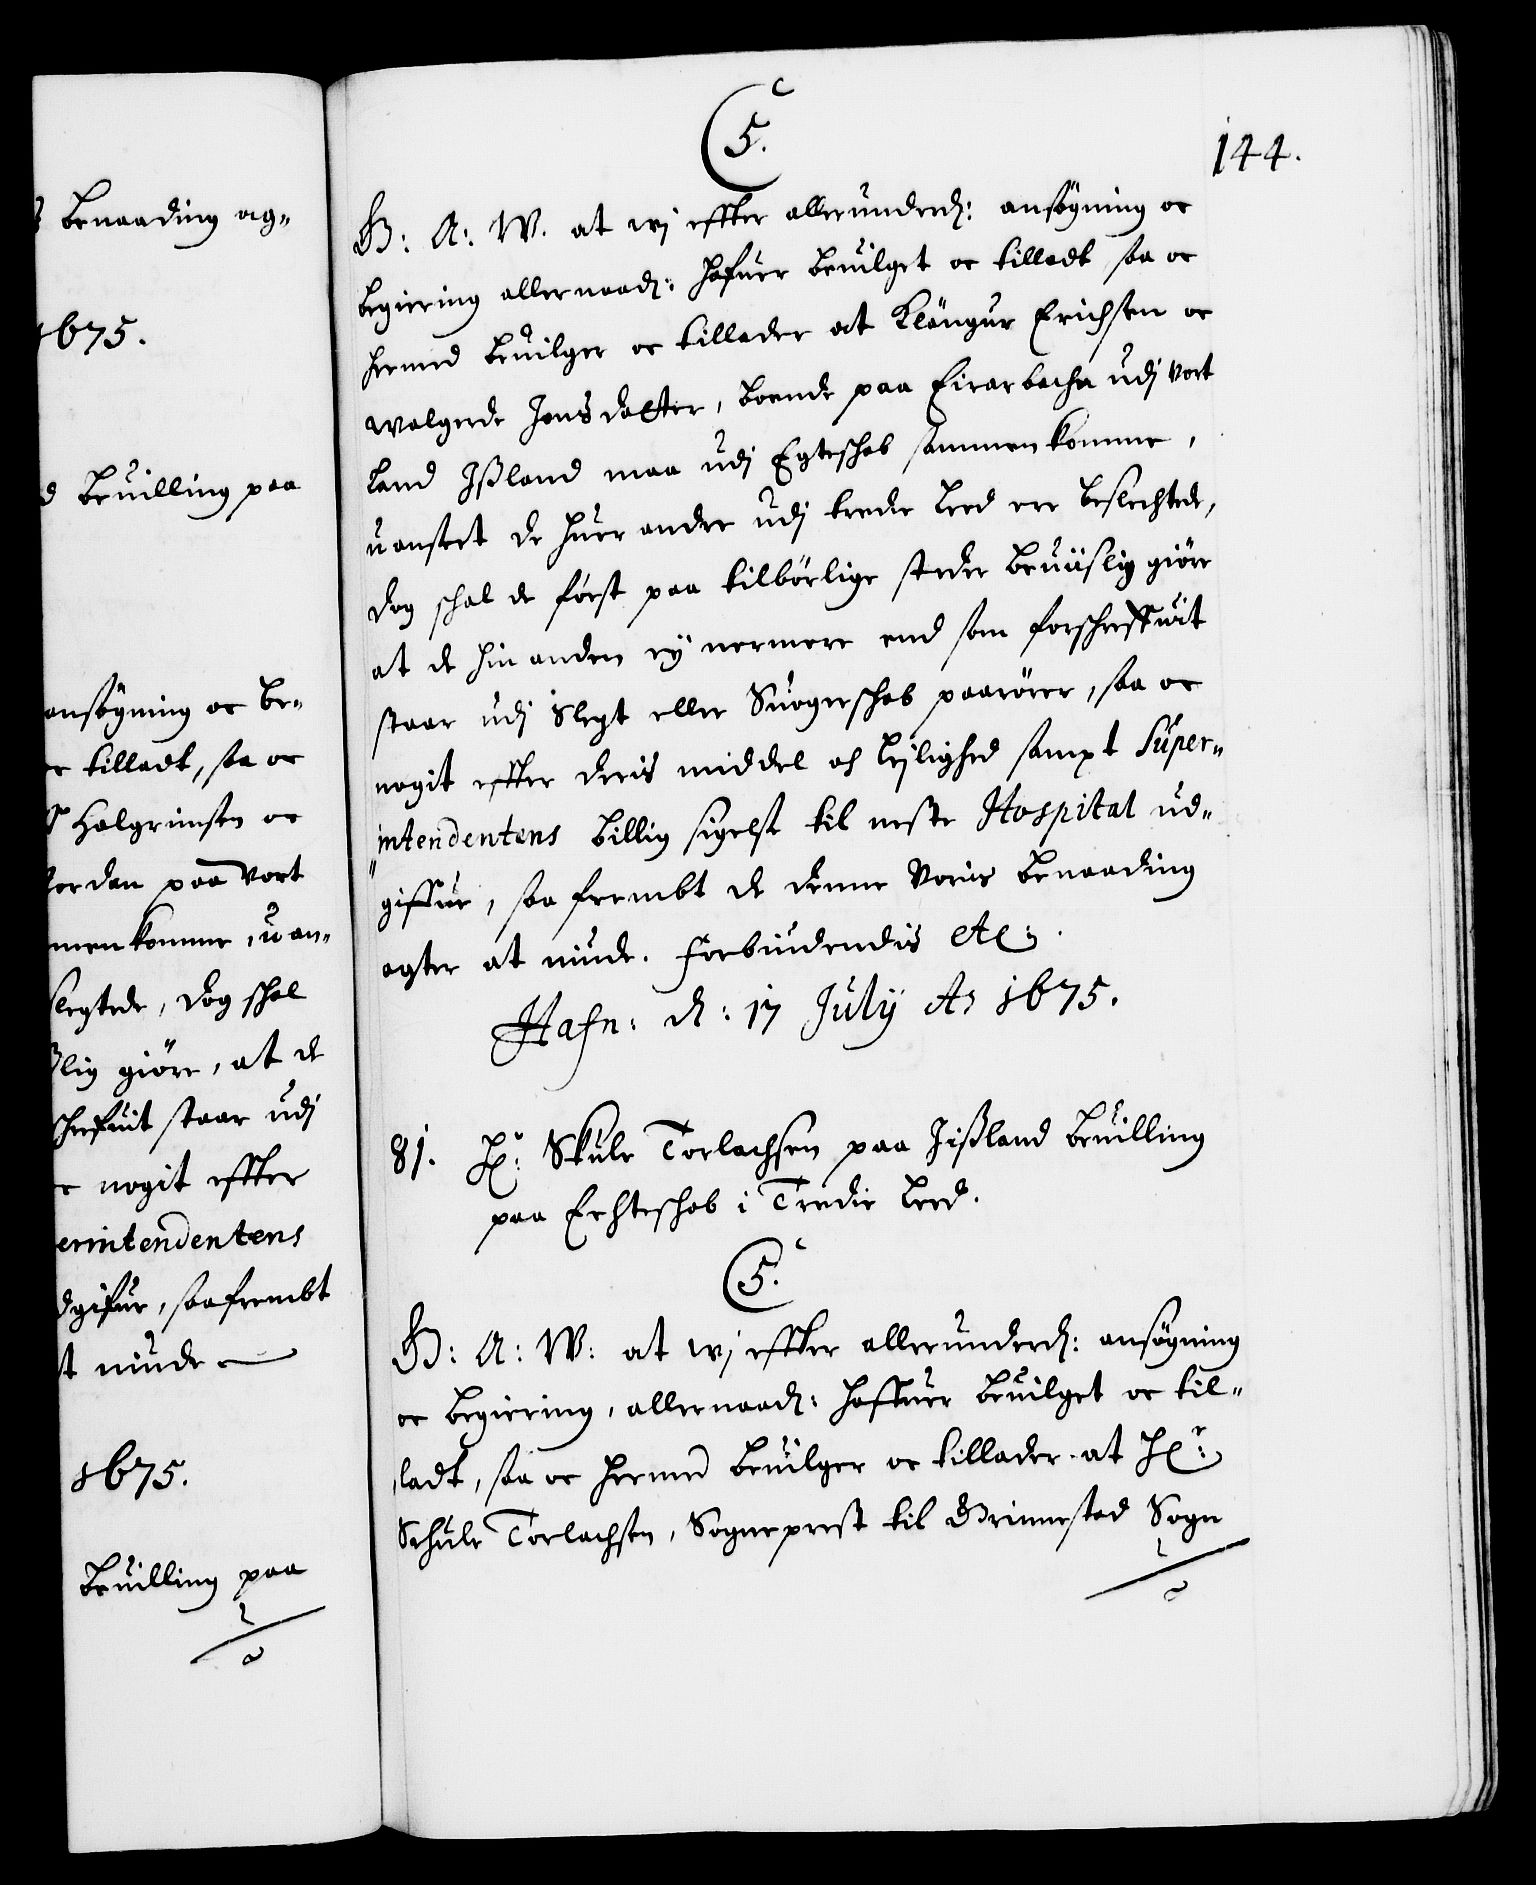 Benaading ag-
1675.
Beuilling paa
ansøgning oc be-
tilladt, saa oc
Halgrimsen oc
Jordan paa Vort
men komme, uan-
slegtede, dog schal
lig giöre, at de
schrefuit staar udj
nogit effter
erintendentens
dgifue, saafrembt
t niude
1675.
Beuilling paa
C5.
144.
G: A: W. at wj effter allerunderd: ansögning oc
begiering allernaad: hafuer beuilget oc tilladt, saa oc
hermed beuilger oc tillader at Klöngur Erichsen oc
Walgerde Jonsdatter, boende paa Eirarbacha udj Vort
Land Ißland maa udj Egteschab sammenkomme,
uanseet de huer andre udj tredie Leed ere beslechtede,
dog schal de först paa tilbörlige steder beuiislig giöre
at de hin anden ej nermere end som forschreffuit
staar udj Slegt eller Suogerschab paarörer, saa oc
nogit effter deris middel och Lejlighed sampt Super-
intendentens billig sigelse til neste Hospital ud-
giffue, saa frembt de denne Voris Benaading
agter at niude. Forbiudendis etc:
Hafn: d: 17 July Ao 1675.
81. Hr: Skule Torlachsen paa Jißland beuilling
paa Echteschab i Tredie Leed.
C5.
G: A: W: at wj effter allerunderd: ansögning
oc begiering, allernaad: haffuer beuilget oc til-
ladt, saa oc hermed beuilger oc tillader at Hr:
Schule Torlachsen, Sogneprest til Grinnestad Sogn